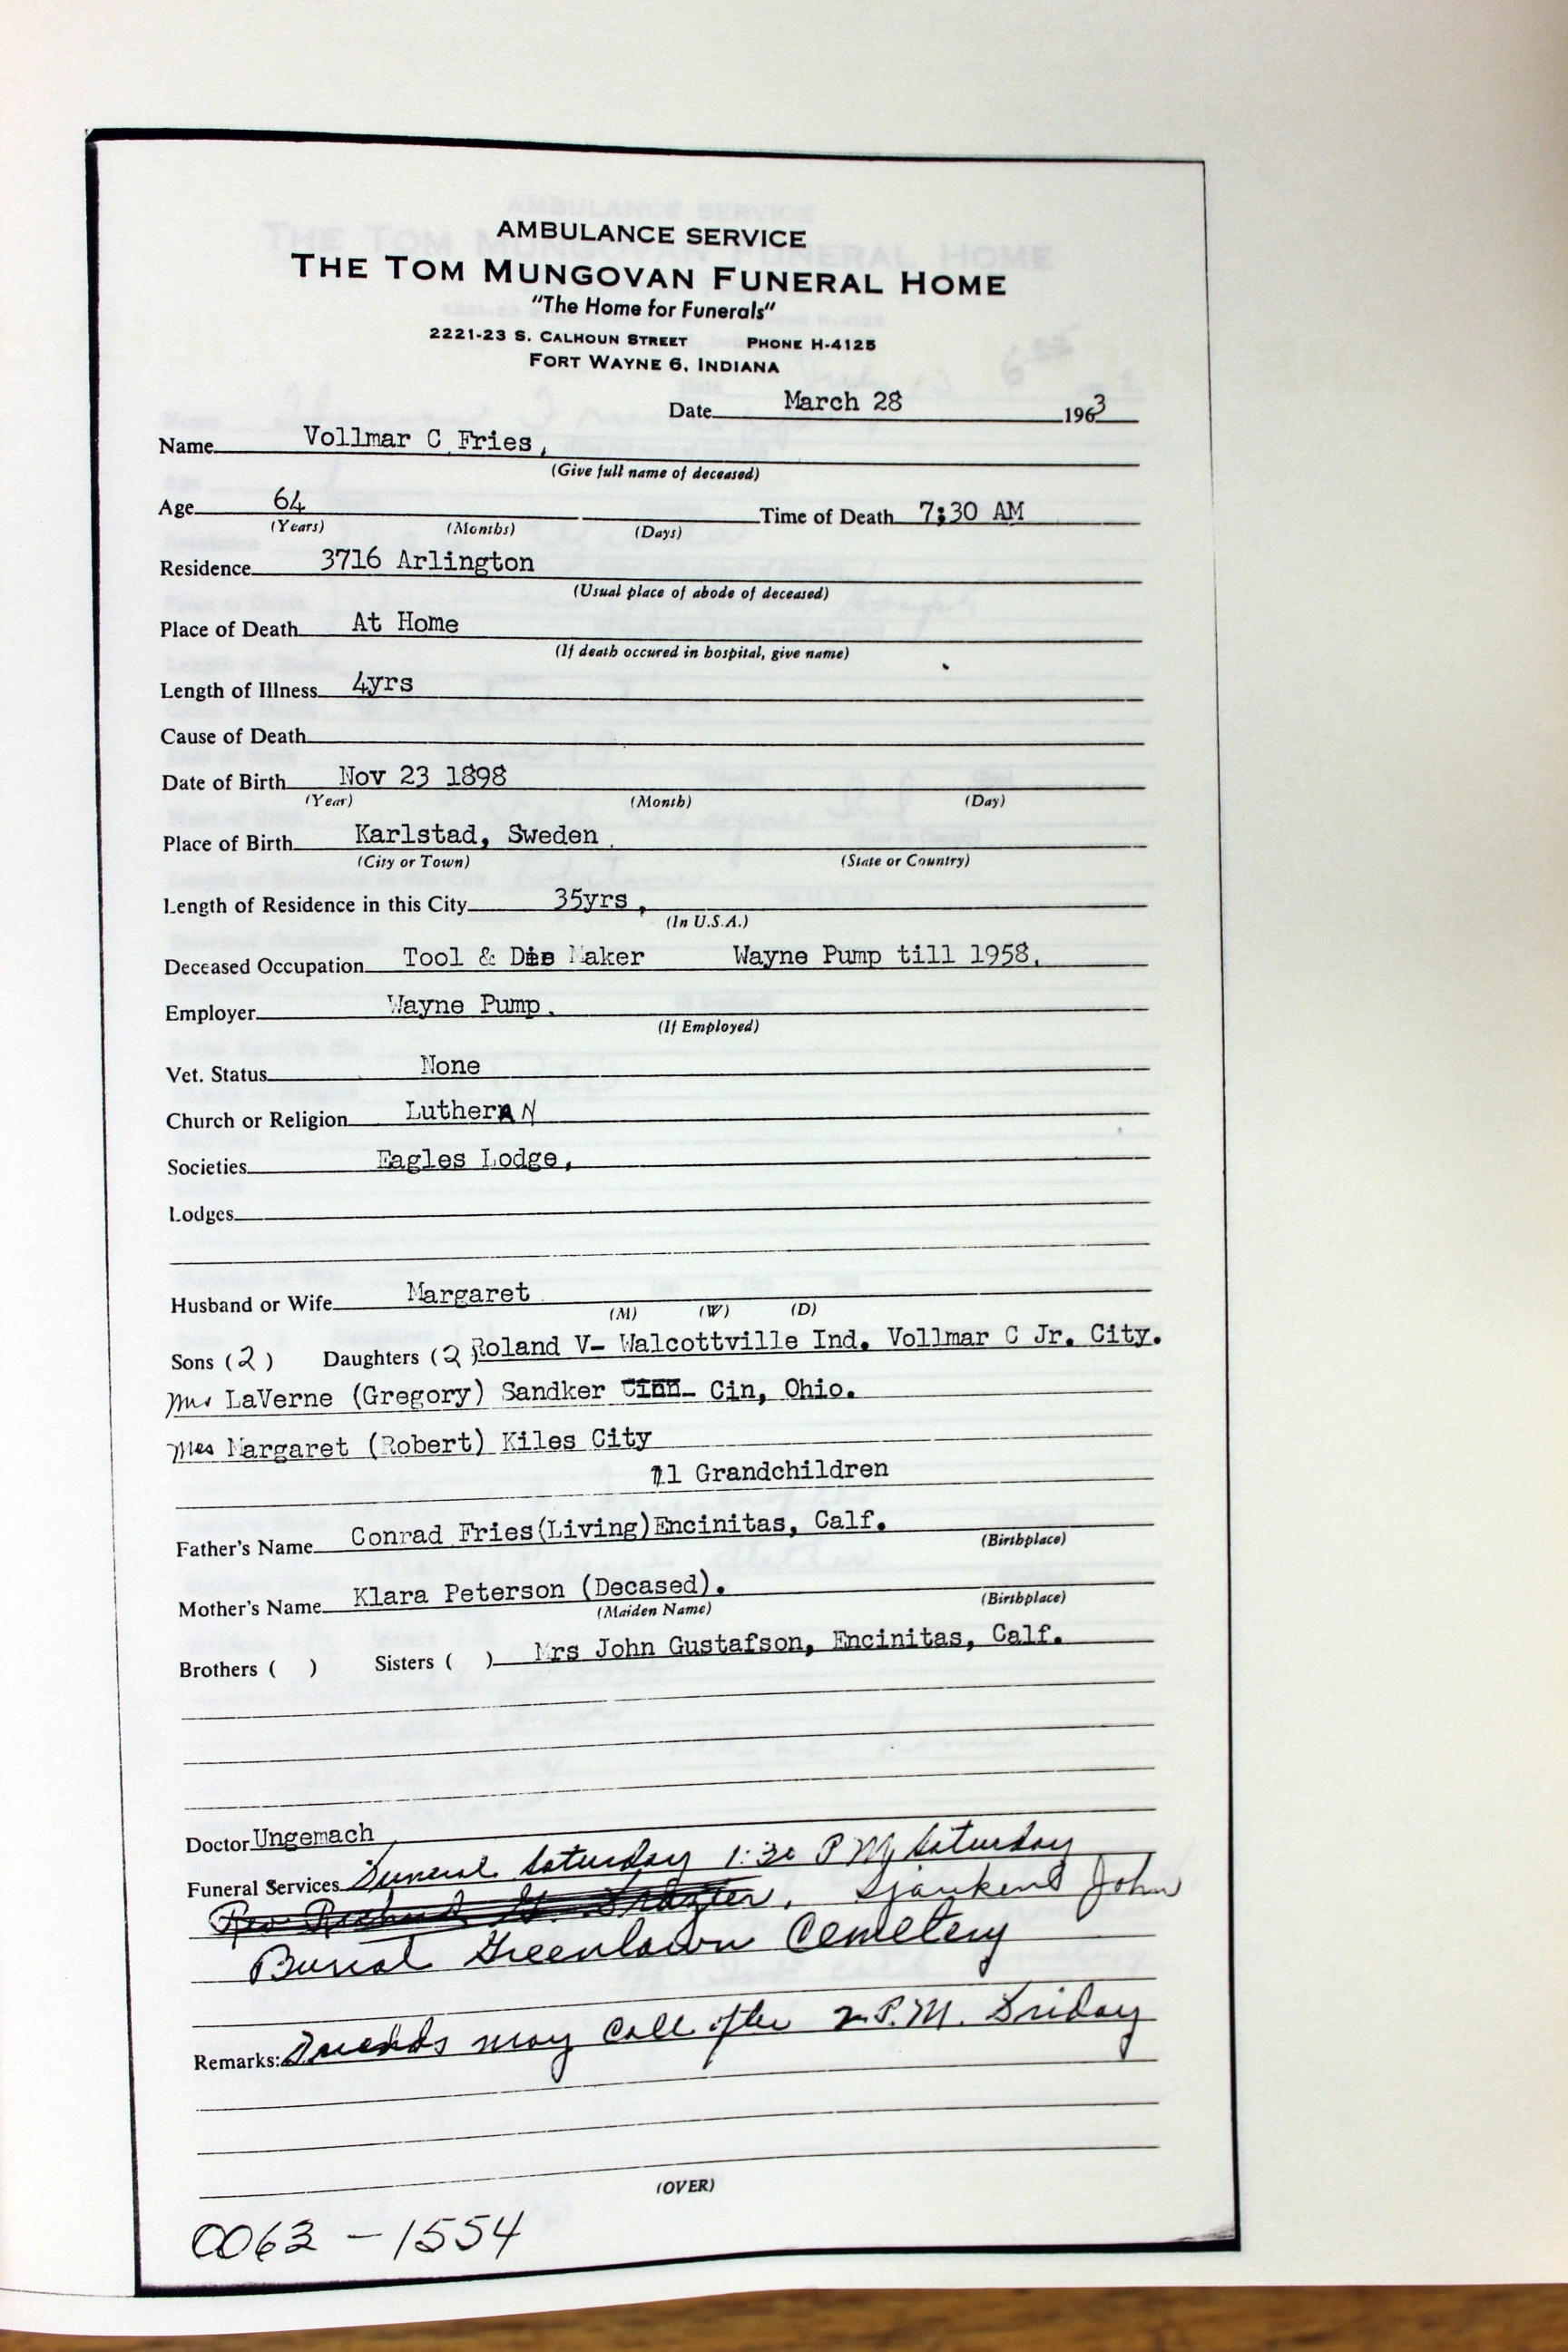 AMBULANCE SERVICE
THE TOM MUNGOVAN FUNERAL HOME
"The Home for Funerals"
2221-23 S. CALHOUN STREET PHONE H-4125
FORT WAYNE 6, INDIANA
Date March 28 1963
Name Vollmar C Fries,
(Give full name of deceased)
Age 64 Time of Death 7:30 AM
(Years) (Months) (Days)
Residence 3716 Arlington
(Usual place of abode of deceased)
Place of Death At Home
(If death occured in hospital, give name)
Length of Illness 4yrs
Cause of Death
Date of Birth Nov 23 1898
(Year) (Month) (Day)
Place of Birth Karlstad, Sweden.
(City or Town) (State or Country)
Length of Residence in this City 35yrs,
(In U.S.A.)
Deceased Occupation Tool & Die Maker Wayne Pump till 1958.
Employer Wayne Pump.
(If Employed)
Vet. Status None
Church or Religion LutherAN
Societies Eagles Lodge,
Lodges
Husband or Wife Margaret
(M) (W) (D)
Sons (2) Daughters (2) Roland V- Walcottville Ind. Vollmar C Jr. City.
Mrs LaVerne (Gregory) Sandker Cinn- Cin, Ohio.
Mrs Margaret (Robert) Kiles City
11 Grandchildren
Father's Name Conrad Fries(Living)Encinitas, Calf.
(Birthplace)
Mother's Name Klara Peterson (Decased).
(Maiden Name) (Birthplace)
Brothers ( ) Sisters ( ) Mrs John Gustafson, Encinitas, Calf.
Doctor Ungemach
Funeral Services Funeral Saturday 1:30 P M, Saturday
Rev. John
Burial Greenlawn Cemetery
Remarks: Friends may call after 2 P.M. Friday
(OVER)
0063 - 1554